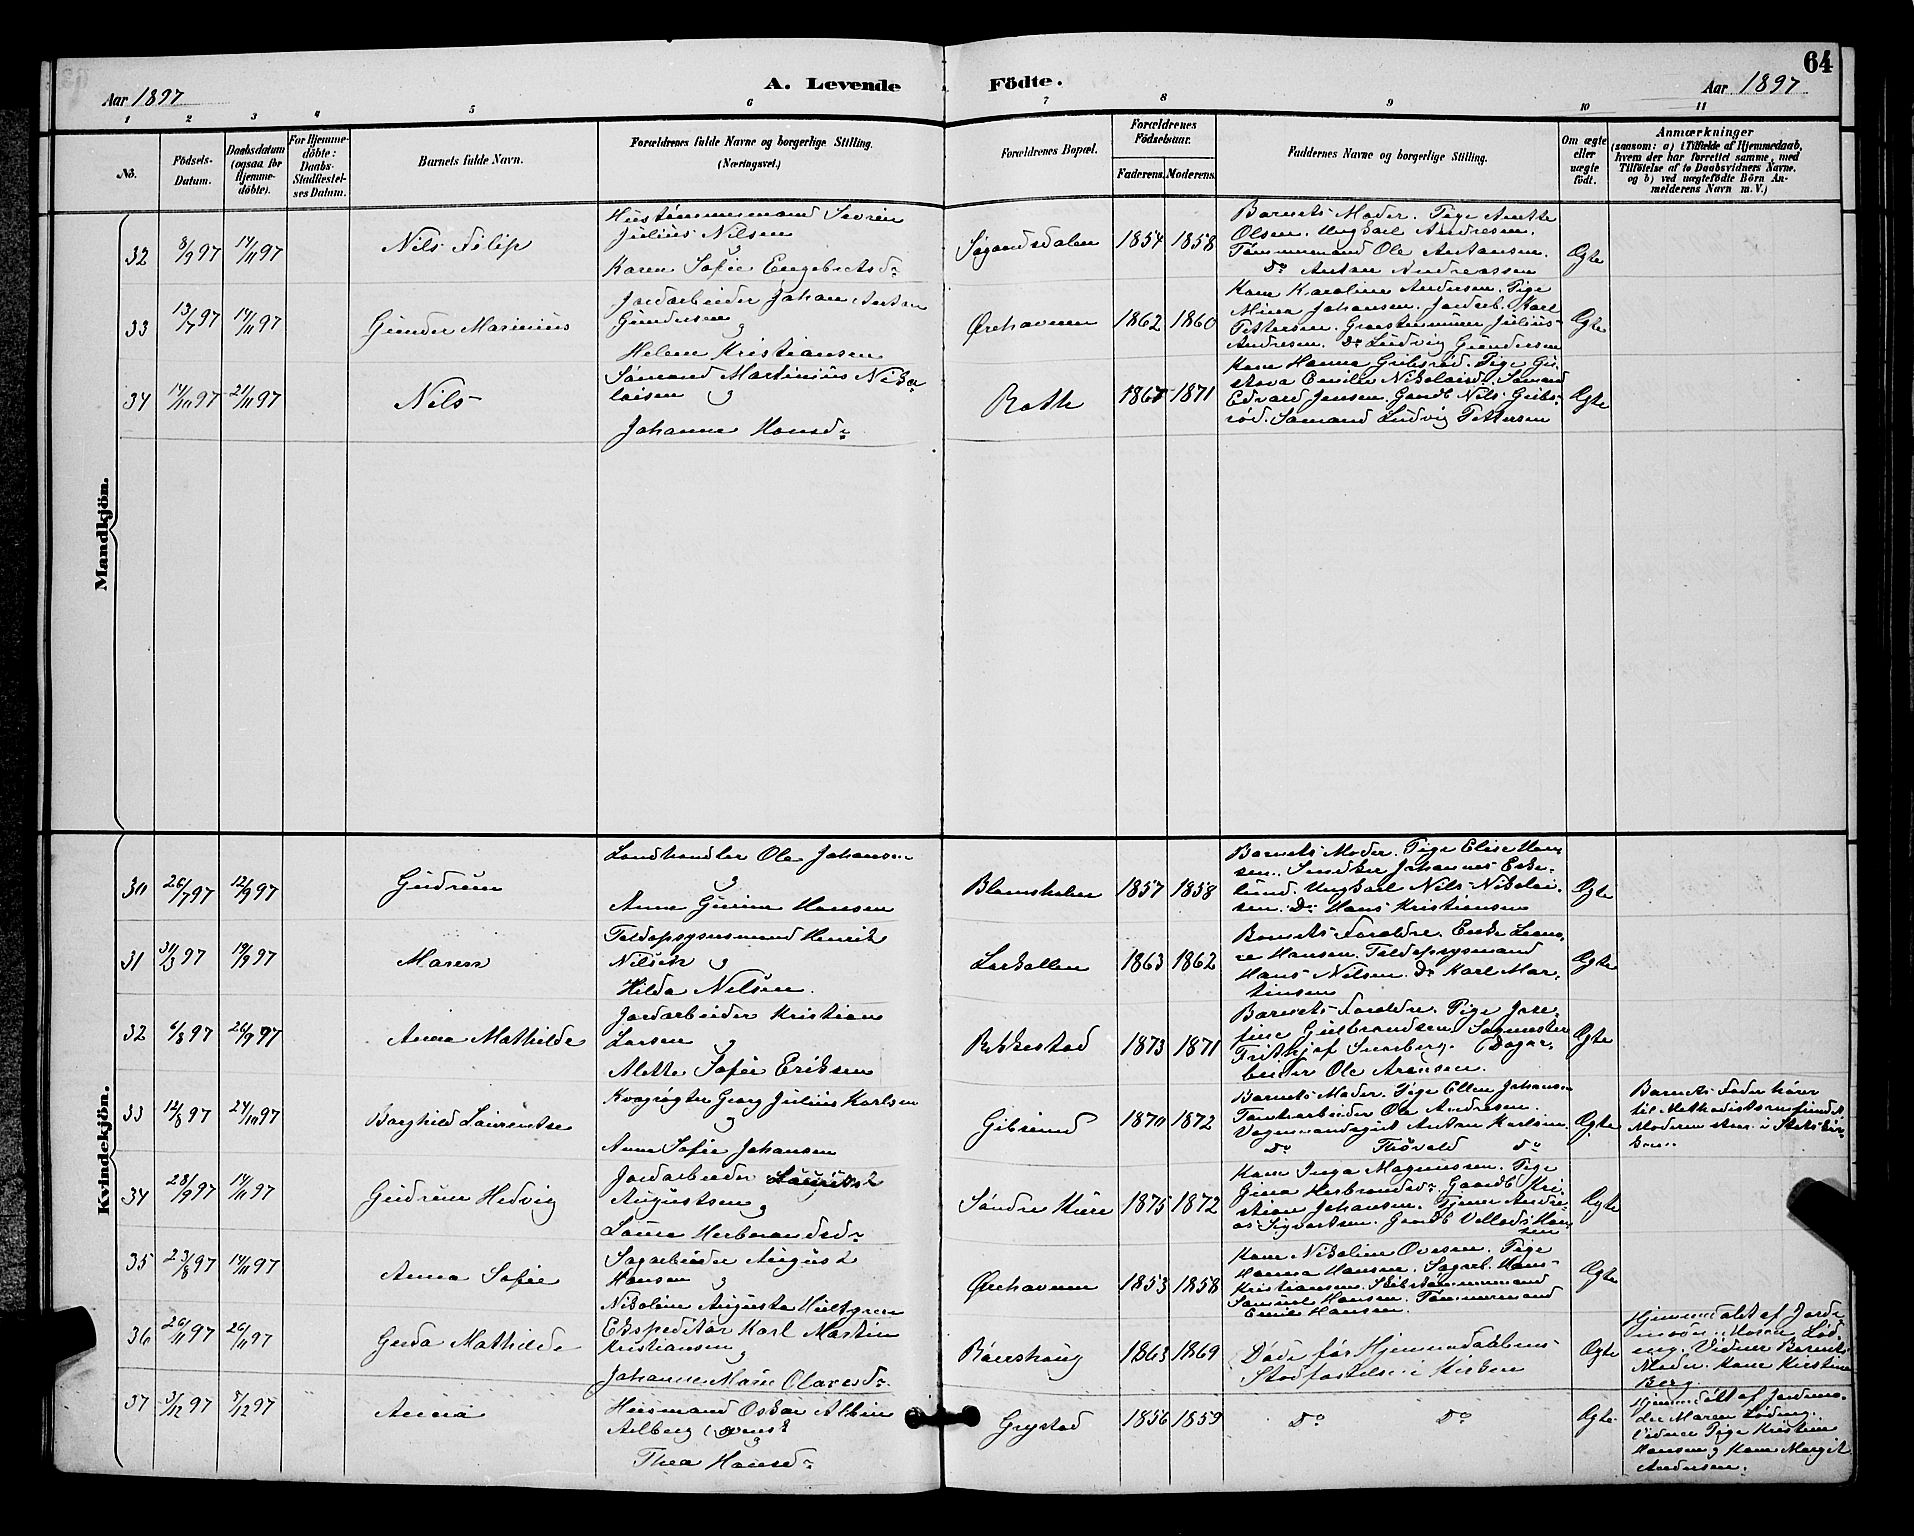 64
Aar 1897
A. Levende
Födte.
Aar 1897
1 2 3 4 5 6 7 8 9 10 11
No.
Födsels-Datum.
Daabsdatum (ogsaa for Hjemme-döbte).
For Hjemme-döbte: Daabs-Stadfæstelses Datum.
Barnets fulde Navn.
Forældrenes fulde Navne og borgerlige Stilling. (Næringsvei.)
Forældrenes Bopæl.
Forældrenes Födselsaar.
Faderens. Moderens.
Faddernes Navne og borgerlige Stilling.
Om ægte eller uægte födt.
Anmærkninger
(saasom: a) i Tilfælde af Hjemmedaab, hvem der har forrettet samme, med Tilföielse af to Daabsvidners Navne, og b) ved uægtefödte Börn Anmelderens Navn m. V.)
Mandkjön.
32 8/9 97 14/11 97
Nils Filip
Hustømmermand Søvren
Julius Nilsen
og
Karen Sofie Engebretsd.
1854 1858
Barnets Moder. Pige Anette
Olsen. Ungkarl Andresen.
Tømmermand Ole Antonsen.
Do Anton Andreassen
Ægte
33 13/7 97 14/11 97
Gunder Marinius
Jordarbeider Johan Anton
Gundersen
og
Helene Kristiansen
Ørehavnen 1862 1860
Kone Karoline Andersen. Pige
Mina Johansen. Jordarb. Karl
Pettersen. Graastensminer Julius
Andresen. Do Ludvig Gundersen
Ægte
34 14/10 97 21/11 97
Nils
Sømand Martinius Nikolaisen
og
Johanne Hansd.
Roth 1867 1871
Kone Hanna Gibsrød. Pige Gustava
Emilie Nikolaisd. Sømand
Edvard Jensen. Gaardb. Nils Gibsrød.
Sømand Ludvig Pettersen
Ægte
Kvindekjön.
30 26/7 97 12/9 97
Gudrun
Landhandler Ole Johansen
og
Anne Gurine Hansen
Blomsholm 1857 1858
Barnets Moder. Pige Elise Hansen.
Snedker Johannes Eskelund.
Ungkarl Nils Nikolaisen.
Do Hans Kristiansen
Ægte
31 31/3 97 19/9 97
Maren
Toldopsynsmand Henrik
Nilsen og
Hilda Nilsen.
Larkollen 1863 1862
Barnets Forældre. Enke Leonore
Hansen. Toldopsynsmand
Hans Nilsen. Do Karl Martinsen
Ægte
32 6/8 97 26/9 97
Anna Mathilde
Jordarbeider Kristian
Larsen og
Alette Sofie Eriksen
Rekkestad 1873 1871
Barnets Forældre. Pige Josefine
Gulbrandsen. Sagmester
Frithjof Snarberg. Dagarbeider
Ole Arensen.
Ægte
33 12/8 97 24/10 97
Borghild Laurentse
Kvægrøgter Georg Julius Karlsen
og
Anne Sofie Johansen
Gibsund 1870 1872
Barnets Moder. Pige Ellen Johansen
Tomtearbeider Ole Andresen.
Anton Karlsen
Do Thorvald Do
Ægte
Barnets Fader hører
til Methodistsamfundet
Moderen staar i Statskirken.
34 28/9 97 14/11 97
Gudrun Hedvig
Jordarbeider Laurits
Augustsen og
Laura Herbrandsd.
Søndre Kure 1875 1872
Kone Inga Magnussen. Pige
Gina Herbrandsd. Gaardb. Kristian
Johansen. Tjener Andreas
Sigvartsen. Gaardb. Hansen
Ægte
35 23/8 97 14/11 97
Anna Sofie
Sagarbeider August
Hansen og
Nikoline Augusta Hultgren
Ørehavnen 1853 1858
Kone Nikoline Ovesen. Pige
Hanna Hansen. Sagarb. Hans
Kristiansen. Skibstømmermand
Samuel Hansen. Tømmermand
Emil Hansen.
Ægte
36 26/11 97 26/11 97
Gerda Mathilde
Ekspeditør Karl Martin
Kristiansen og
Johanne Marie Olavesd.
1863 1869
Døde før Hjemmedaabens
Stadfæstelse i Kirken
Ægte
Hjemmedøbt af Jordemor
Maren Løding.
Vidner Barnets
Moder. Kone Kirstine
Berg.
37 3/12 97 8/12 97
Anna
Husmand Oskar Albin
Aalberg (svensk
og
Thea Hansd.
Grystad 1856 1859
Do Do
Ægte
Hjemmedøbt af Jordemoder
Maren Løding.
Vidner Pige Kristine
Hansen og Kone Margit
Andersen.